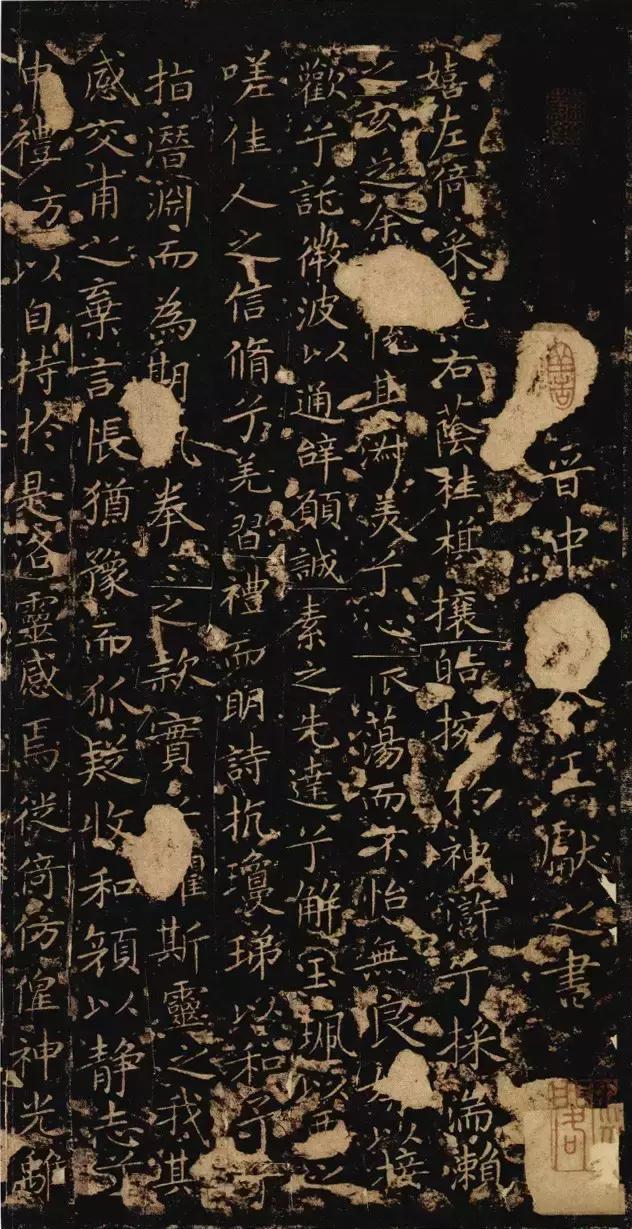 晉中令王獻之書
嬉左倚采旄右蔭桂旗攘皓捥於神滸兮採湍瀨
之玄芝余悅其淑美兮心振蕩而不怡無良媒以接
歡兮託微波以通辭願誠素之先達兮解玉珮以要之
嗟佳人之信脩兮羌習禮而明詩抗瓊珶以和予兮
指潛淵而為期執拳〻之款實兮懼斯靈之我欺
感交甫之棄言悵猶豫而狐疑收和顏以靜志兮
申禮方以自持於是洛靈感焉徙倚仿偟神光離